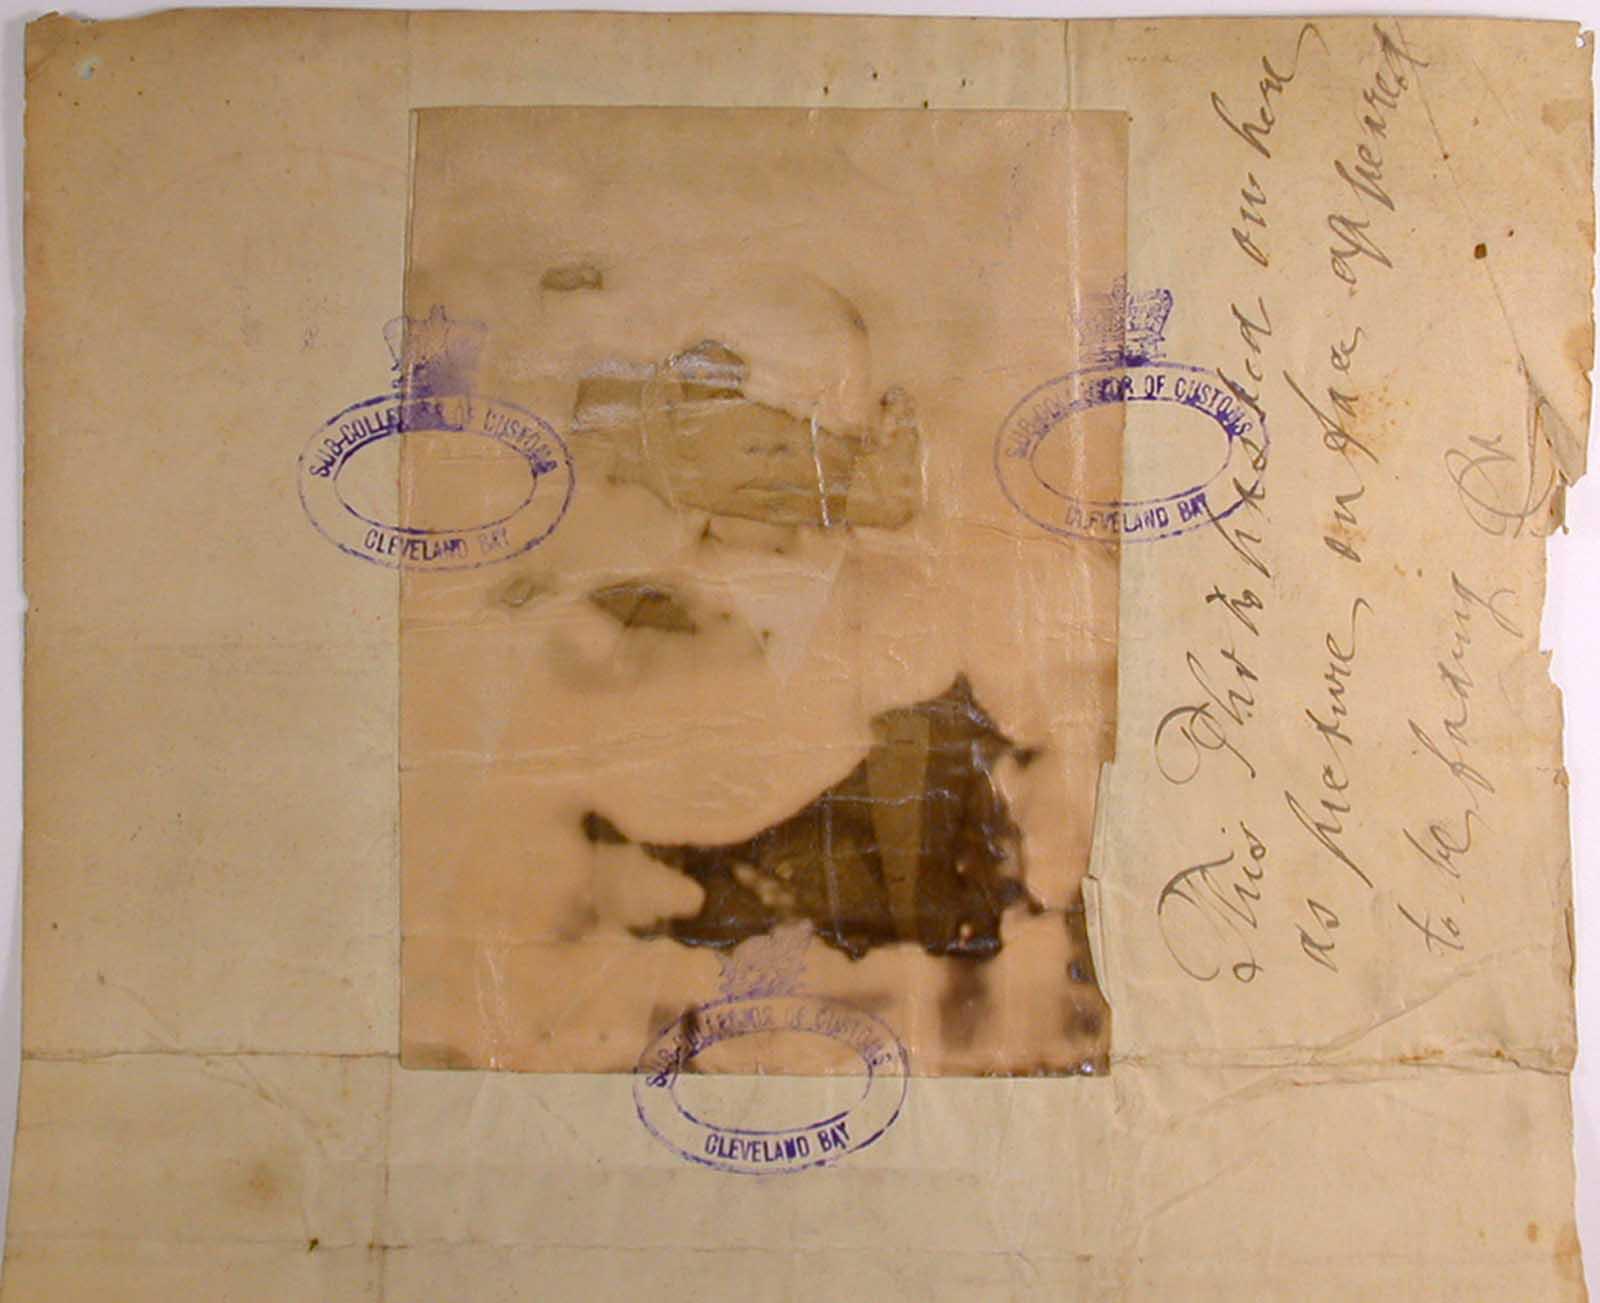 SUB-COLLECTOR OF CUSTOMS
CLEVELAND BAY
SUB-COLLECTOR OF CUSTOMS
CLEVELAND BAY
SUB-COLLECTOR OF CUSTOMS
CLEVELAND BAY
This Photo pasted on here
as picture on face appeared
to be fading